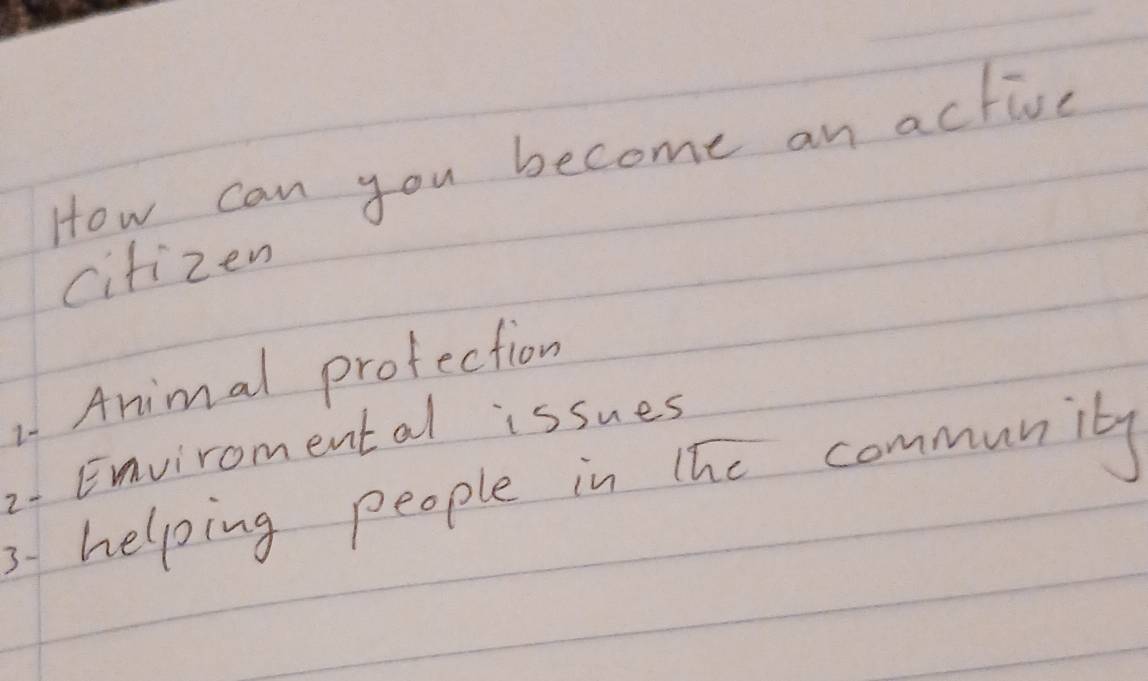 How can you become an active
citizen
1- Animal protection
2- Enviromental issues
3- helping people in the community